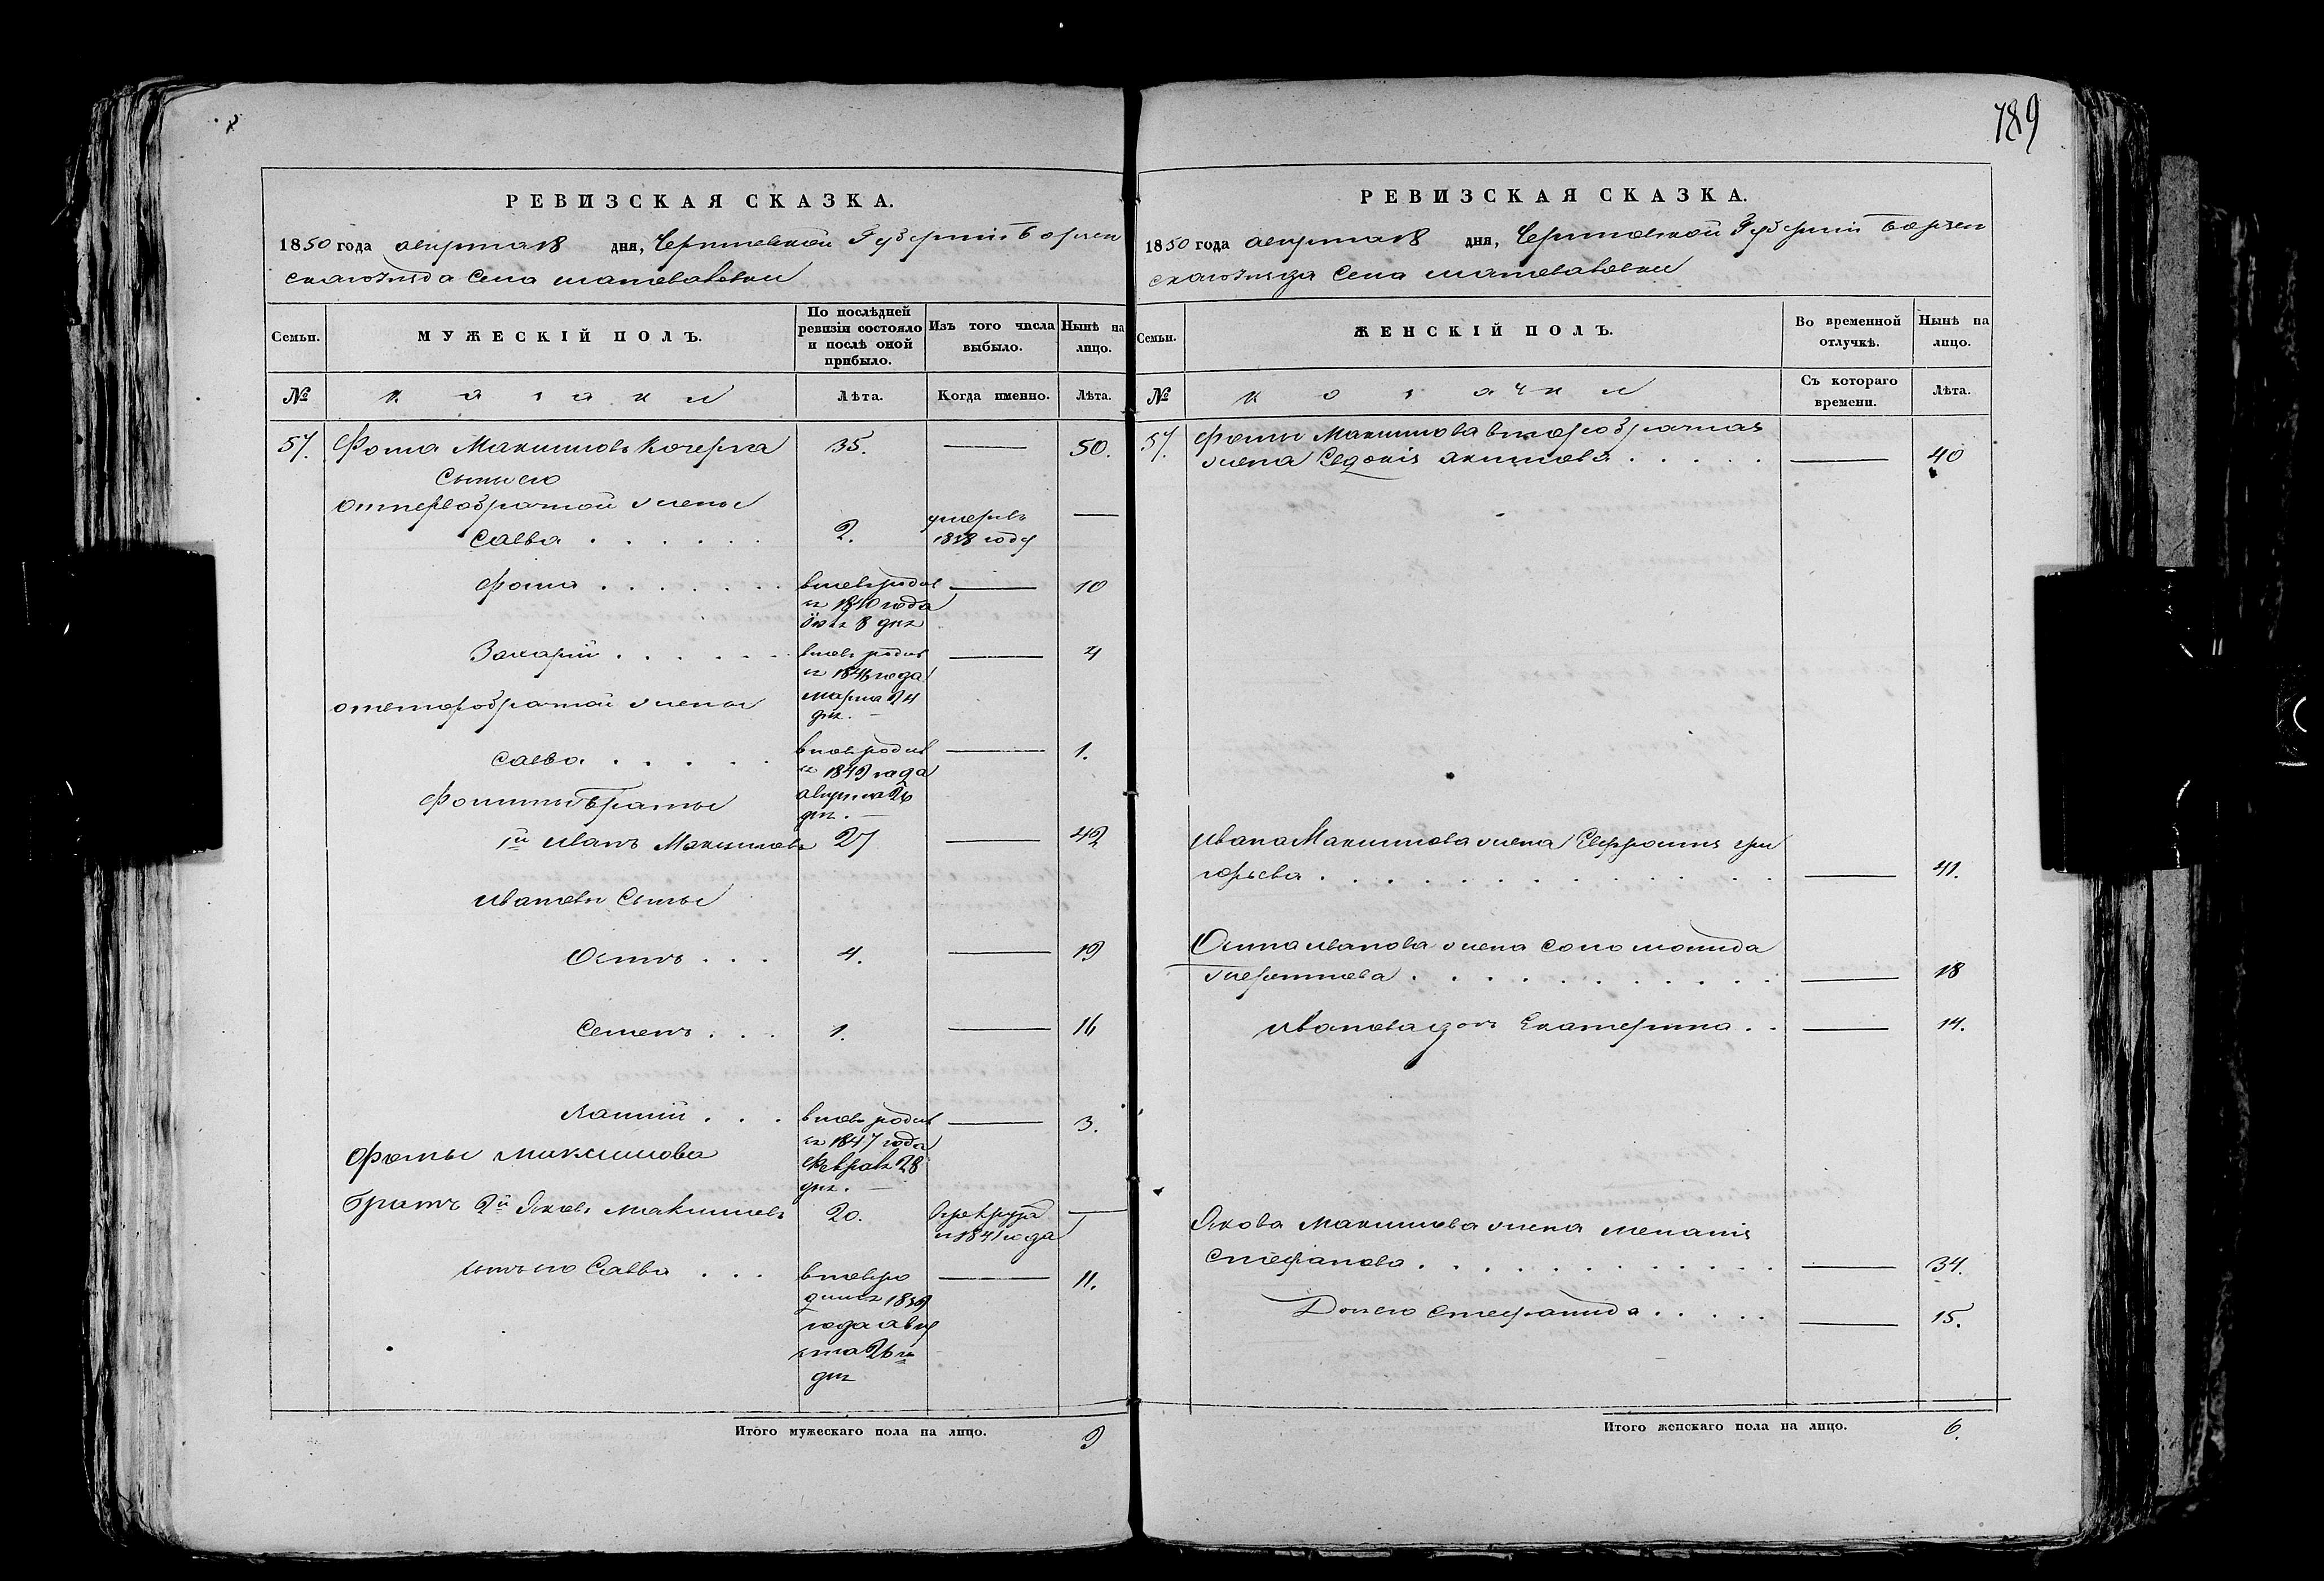 189
РЕВИЗСКАЯ СКАЗКА.
1850 года августа 18 дня, Черниговской Губернiи Борзен
скаго уезда Села
Семьи.
МУЖЕСКІЙ ПОЛЪ.
По послѣдней
ревизіи состояло
и послѣ оной
прибыло.
Изъ того числа
выбыло.
Нынѣ на
лицо.
№
казаки
Лѣта.
Когда именно.
Лѣта.
57. Фома Максимовъ Кочерга 35. — 50.
Сыны его
отпервобрачной жены
Савва . . . . . . 2. умеръ —
1838 году
Фома . . . . . . вновь родил — 10
ся 1840 года
8 дня
Захарiй . . . . . . вновь родил — 4
ся 1846 года
отвторобрачной жены марта 24
дня. —
Савва . . . . . вновь родил — 1.
ся 1849 года
Фомины братья августа 26
дня. —
1й Иванъ Максимовъ 27 — 42
Ивановы Сыны
Осипъ . . . 4. — 19
Семенъ . . . 1. — 16
. . . вновь родил — 3.
ся 1847 года
Фомы Максимова Феврал 28
дня. —
братъ 2й Яковъ Максимовъ 20. —
1841 года
сынъ его Савва . . . вновь ро — 11.
дился 1839
года авгу
ста 26го
дня
Итого мужескаго пола на лицо. 9
РЕВИЗСКАЯ СКАЗКА.
1850 года августа 18 дня, Черниговской Губернiи Борзен
скаго уезда Села
Семьи.
ЖЕНСКІЙ ПОЛЪ.
Во временной
отлучкѣ.
Нынѣ на
лицо.
№
козачки
Съ котораго
времени.
Лѣта.
57. Фомы Максимова второбрачная
жена Евдокiя Акимова . . . . . — 40
Ивана Максимова жена Евфросинiя Гри
горьева . . . . . . . . . . . . — 41.
Осипа Иванова жена Соломонида
. . . . . . . . . . — 18
Иванова дочь Екатерина . . — 14.
Якова Максимова жена Меланiя
Стефанова . . . . . . . . . . . — 34.
Дочь его Степанида . . . . . — 15.
Итого женскаго пола на лицо. 6.